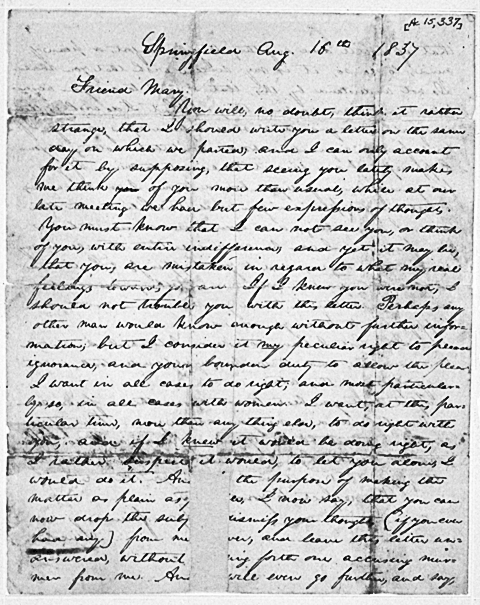 [A-15,337]
Springfield Aug. 16th 1837
Friend Mary.
You will, no doubt, think it rather
strange, that I should write you a letter on the same
day on which we parted; and I can only account
for it by supposing, that seeing you lately makes
me think you of you more than usual, while at our
late meeting we had but few expressions of thoughts.
You must know that I can not see you, or think
of you, with entire indifference; and yet it may be,
that you, are mistaken in regard to what my real
feelings towards you are. If I knew you were not, I
should not trouble you with this letter. Perhaps any
other man would know enough without further infor-
mation; but I consider it my peculiar right to plead
ignorance, and your bounden duty to allow the plea.
I want in all cases to do right, and most particular-
ly so, in all cases with women. I want, at this par-
ticular time, more than any thing else, to do right with
you, and if I knew it would be doing right, as
I rather suspect it would, to let you alone, I
would do it. An the purpose of making the
matter as plain as I now say, that you can
now drop the sub your thoughts (if you ever
had any) from me and leave this letter un-
answered, without ing forth one accusing mur-
mer from me. An will even go further, and say,